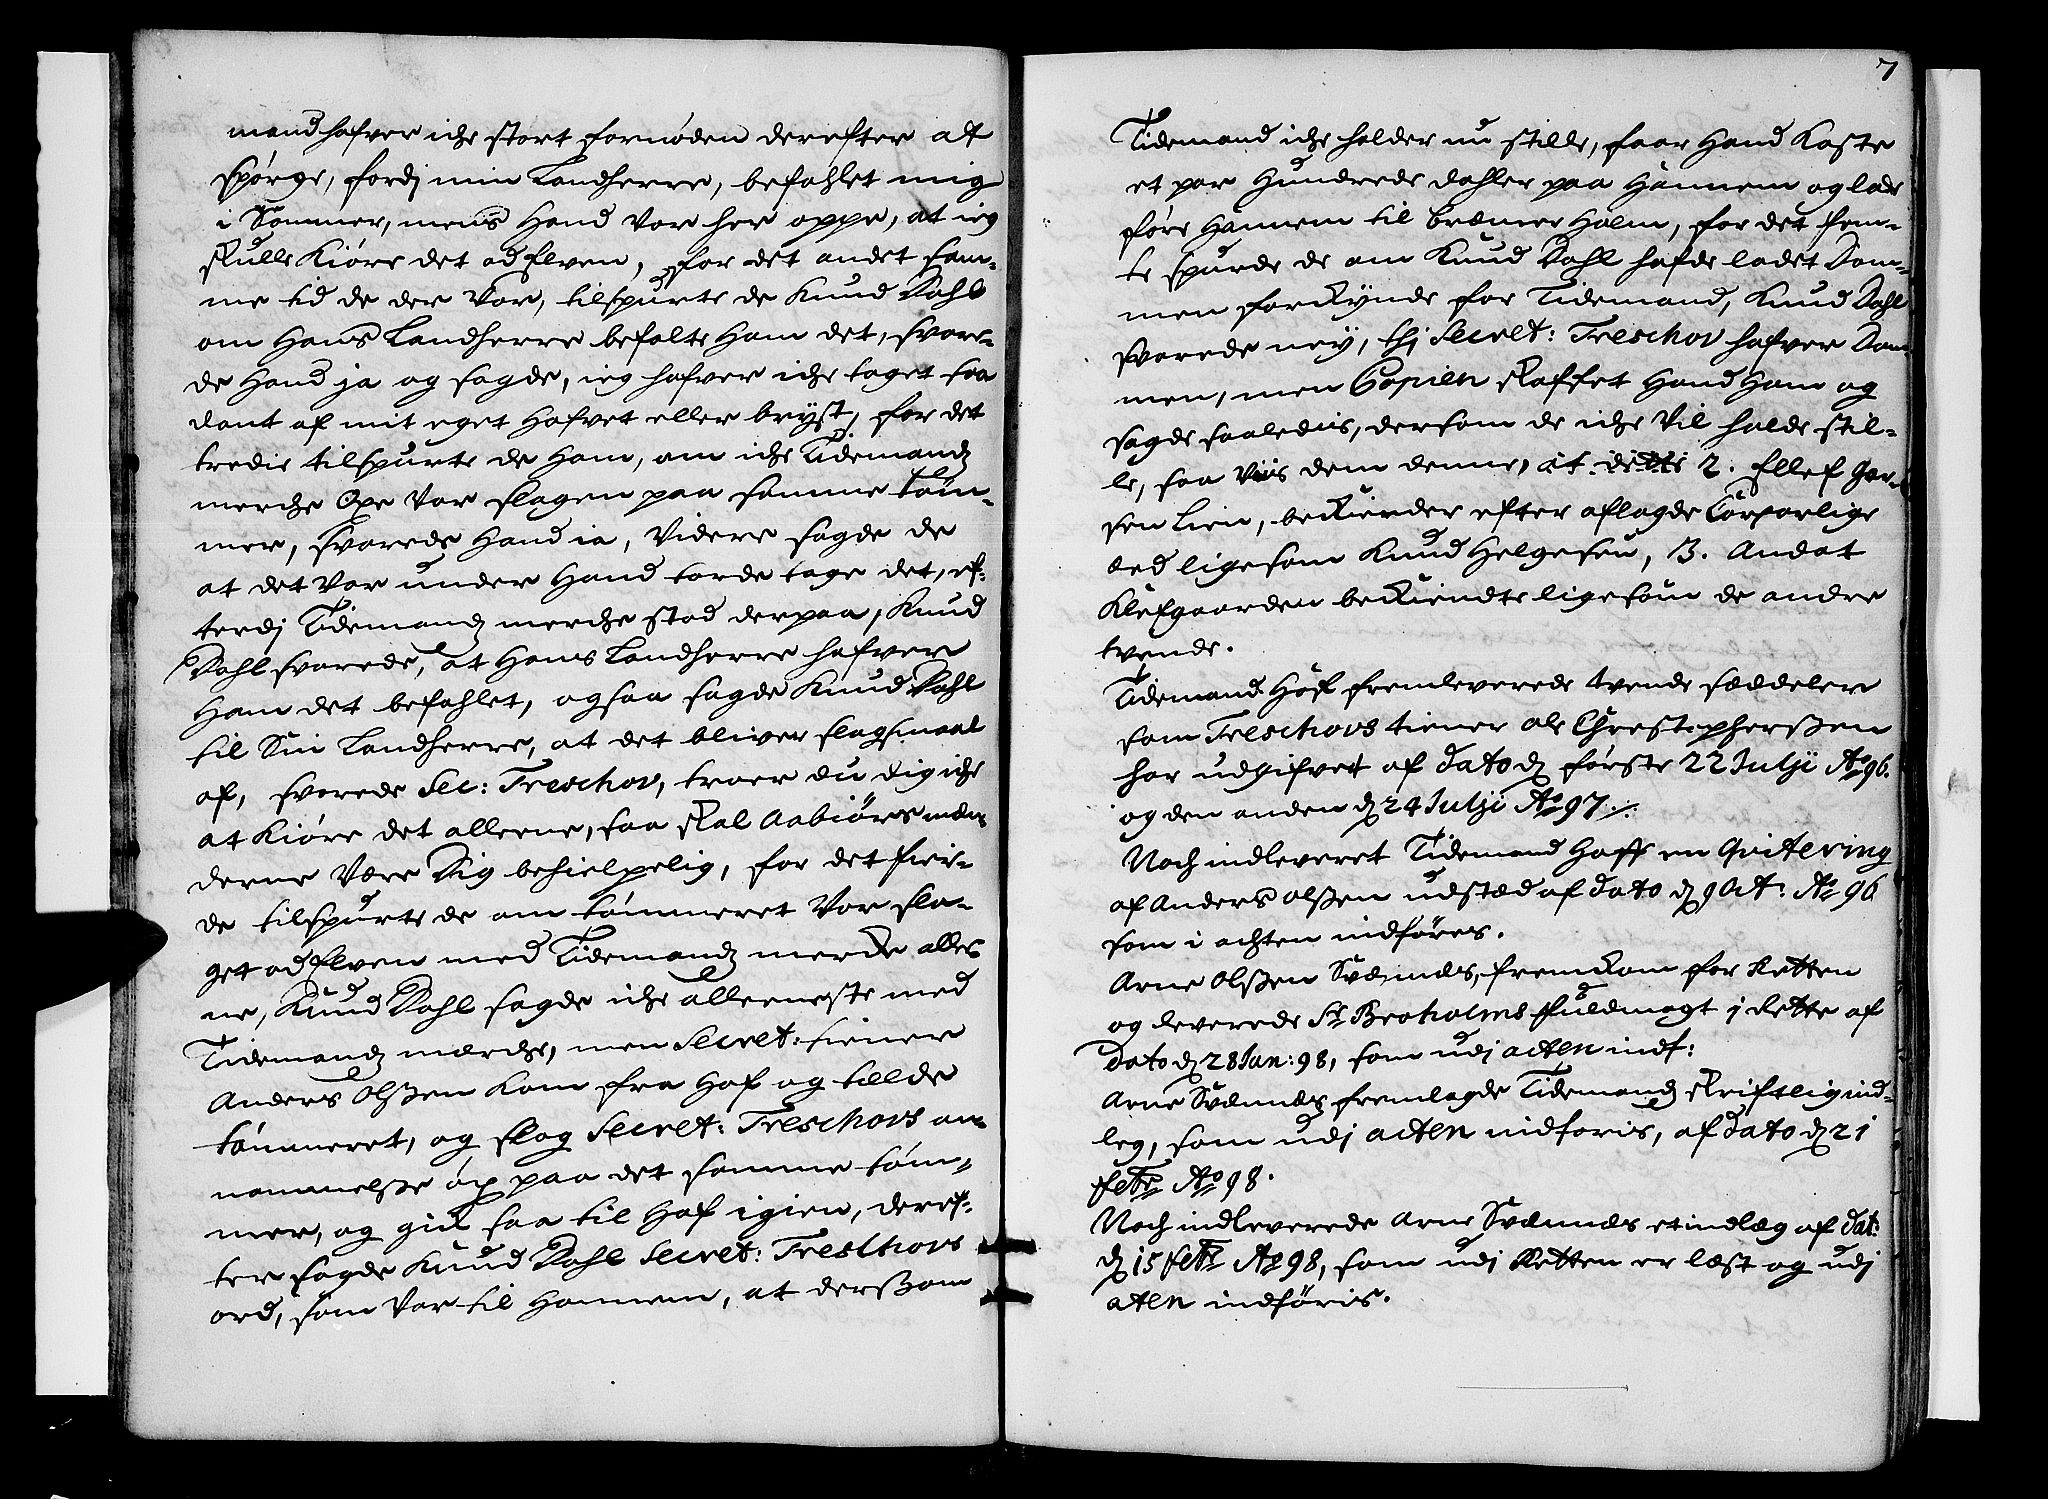 mand hafver iche stort fornøden derefter at
spørge, fordj min Landherre, befahlet mig
i Sommer, mens Hand Var her oppe, at ieg
skulle Kiøre det ad Elven, for det andet sam-
me tid de der Var, tilspurte de Knud Dahl
om Hans Landherre befalte Ham det, svare-
de Hand ja og sagde, ieg hafver iche taget saa
dant af mit eget Hofvet eller bryst, for det
tredie tilspurte de Ham, om iche Tidemandz
merche Øxe Var slagen paa samme töm-
mer, svarede Hand ia, Videre sagde de
at det Var under Hand torde tage det, ef-
terdj Tidemandz merche stod derpaa, Knud
Dahl svarede, at Hans Landherre hafver
Ham det befahlet, ogsaa sagde Knud Dahl
til Sin Landherre, at det bliver slagsmaal
af, svarede Sec: Treschov, troer du dig iche
at Kiøre det alleene, saa skal Aabiørs mæn
derne Være Dig behielpelig, for det fier-
de tilspurte de om tömmeret Var sla-
get ad Elven med Tidemandz merche alle-
ne, Knud Dahl sagde iche alleeneste med
Tidemandz mærche, men Secret: tiener
Anders Olßen Kom fra Hof og tælde
tömmeret, og slog Secret: Treschovs an-
nammelße öx paa det samme töm-
mer, og gik saa til Hof igien, deref-
ter sagde Knud Dahl Secret: Treschovs
ord, som Var til Hannem, at derßom
7
Tidemand iche holder nu stille, faar Hand Kaste
et par Hundrede dahler paa Hannem og lade
føre Hannem til Bræmer Holm, for det fem-
te spurde de om Knud Dahl hafde ladet Dom-
men forkynde for Tidemand, Knud Dahl
svarede ney, thj Secret: Treschov hafver Dom-
men, men Copien skaffet Hand Ham og
sagde saaledis, dersom de iche Vil holde stil-
le, saa Viis dem denne, at dette 2. Ellef
sen Lien, bekiender efter aflagde Corporlige
æed ligesom Knud Helgesen, 3. Andat
Klefgaarden bekiendte ligesom de andre
tvende.
Tidemand Hof fremleverede tvende sæddeler
som Treschovs tiener ole Christopherßen
har udgifvet af dato dend første 22 Julij Ao 96.
og den anden d 24 Julij Ao 97.
Noch indleveret Tidemand Hoff en Qvitering
af Anders Olßen udstæd af dato d 9 Oct: Ao 96
som i achten indføres.
Arne Olßen Svæmæs, fremkom for Retten
og leverede Sr Broholms fuldmagt j Rette af
dato d 28 Jan: 98, som udj acten indf:
Arne Svænnæs fremlagde Tidemandz skriftlig ind-
leg, som udj acten indføris, af dato d 21
febr Ao 98.
Noch indleverede Arne Svænnæs et indlæg af dat:
d 15 febr Ao 98, som udj Retten er læst og udj
acten indføris.